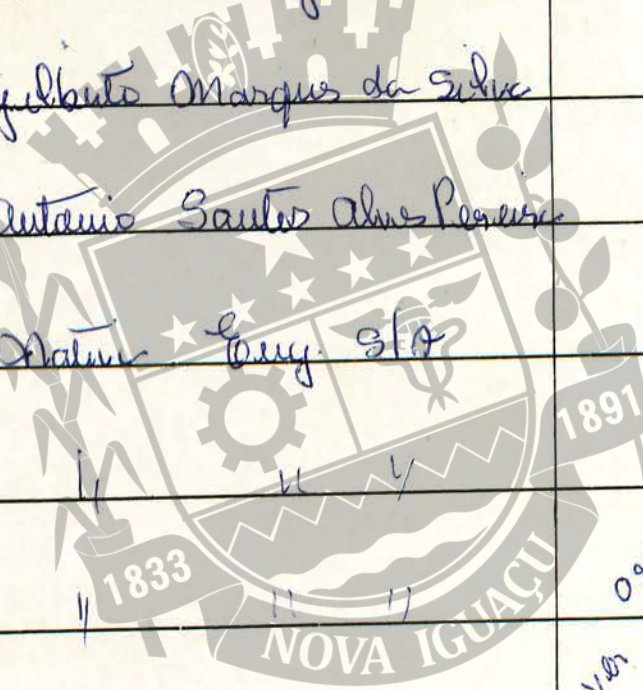 Gilberto Marques da Silva
Antonio Santos Alves Pereira
Eng. S/A
" " "
1891
1833
" " "
0°
NOVA IGUAÇU